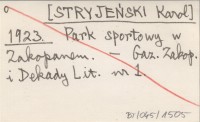 [STRYJEŃSKI Karol]
1923. Park sportowy w
Zakopanem. – Gaz. Zakop.
i Dekady Lit. nr 1.
BJ/045/1505